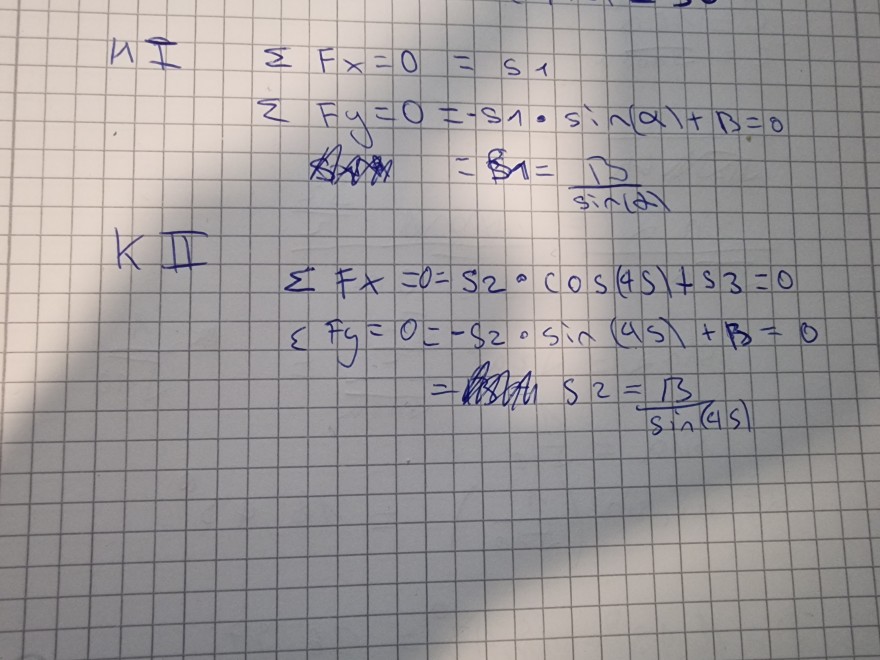 K I Σ Fx = 0 = S1
Σ Fy = 0 = -S1 · sin(α) + B = 0
= S1 = B / sin(α)
K II
Σ Fx = 0 = S2 · cos(45) + S3 = 0
Σ Fy = 0 = -S2 · sin(45) + B = 0
= S2 = B / sin(45)